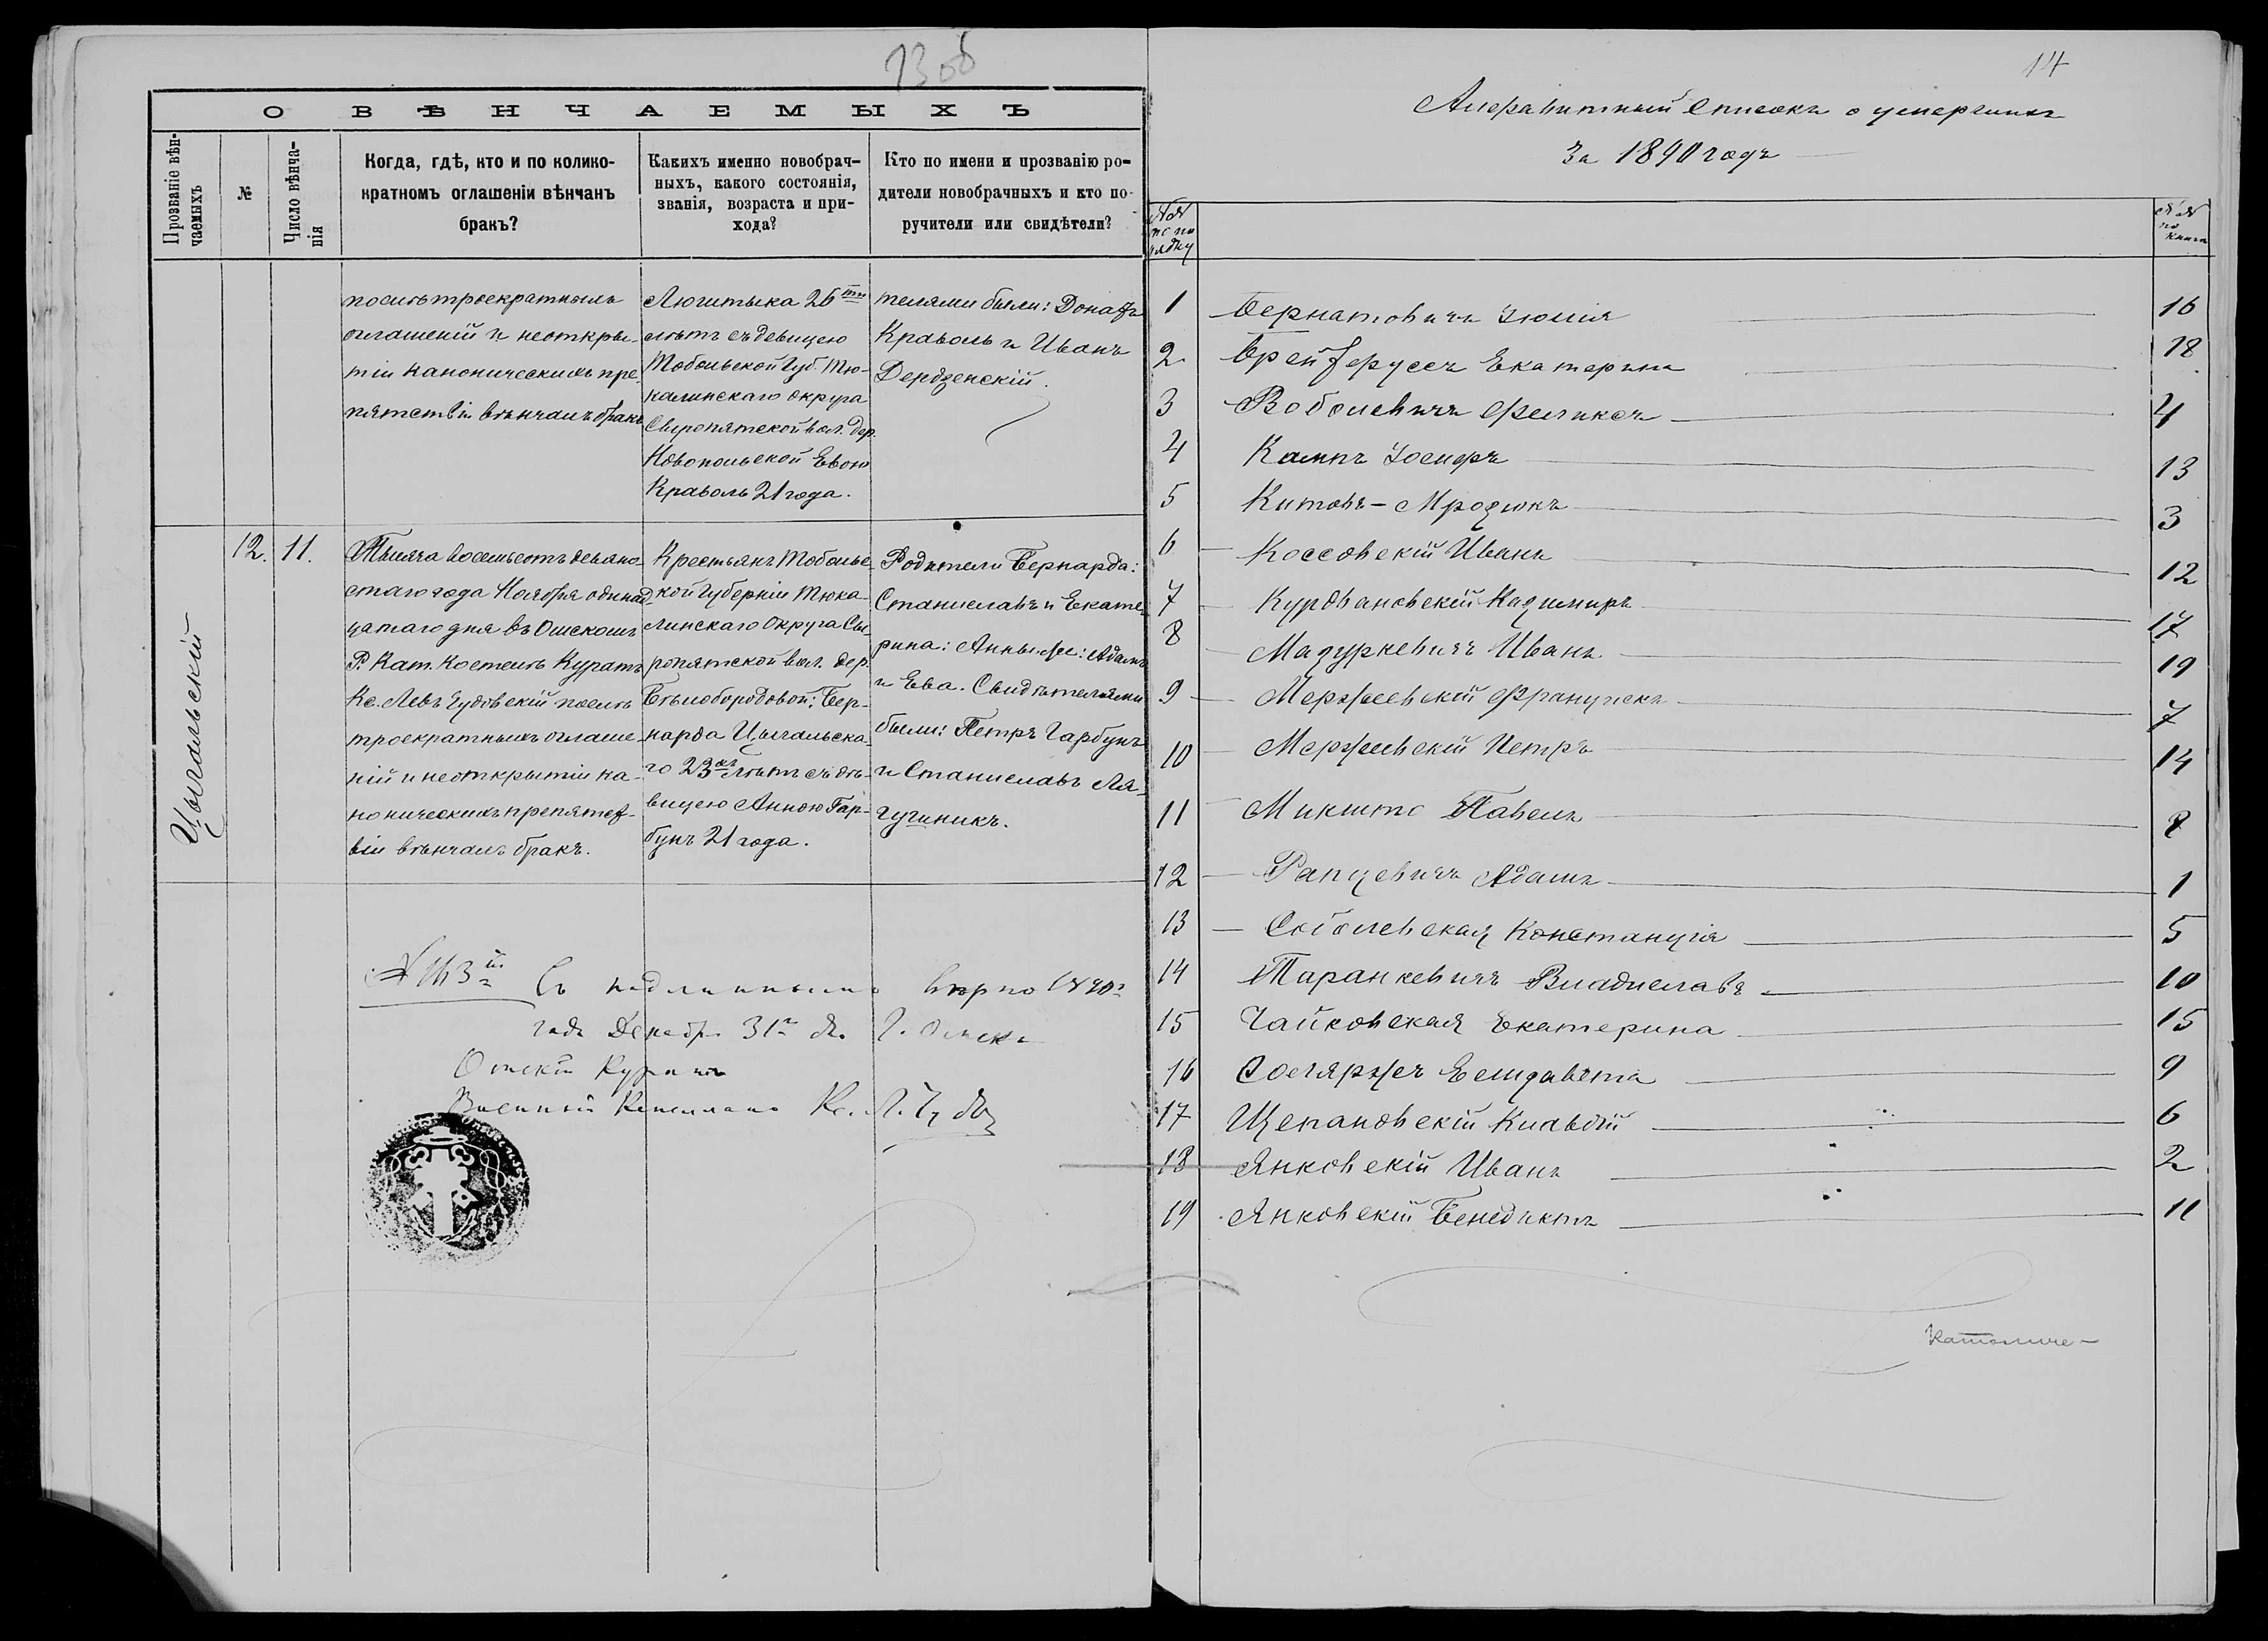 13 об
О ВѢНЧАЕМЫХЪ
Прозваніе вѣн-
чаемыхъ
№
Число вѣнча-
нія
Когда, гдѣ, кто и по колико-
кратномъ оглашеніи вѣнчанъ
бракъ?
Какихъ именно новобрач-
ныхъ, какого состоянія,
званія, возраста и при-
хода?
Кто по имени и прозванію ро-
дители новобрачныхъ и кто по-
ручители или свидѣтели?
послѣ троекратныхъ
оглашеній и неоткры-
тіи каноническихъ пре-
пятствій вѣнчалъ бракъ
Лютыка 26ти
лѣтъ съ девицею
Тобольской Губ. Тю-
калинскаго округа
Сыропятской вол. дер.
Новопольской Евою
Краволь 21 года.
телями были: Донатъ
Краволь и Иванъ
Дердзенскій.
Цыгальскій
12.
11.
Тысяча восемьсотъ девяно-
стаго года Ноября одинад-
цатаго дня въ Омскомъ
Р. Кат. Костелѣ Куратъ
Кс. Левъ Чудовскій послѣ
троекратныхъ оглаше-
ній и неоткрытіи ка-
ноническихъ препятст-
вій вѣнчалъ бракъ.
Крестьянъ Тобольс-
кой Губерніи Тюка-
линскаго Округа Сы-
ропятской вол. дер.
Бѣлобородовой: Бер-
нарда Цыгальска-
го 23хъ лѣтъ съ дѣ-
вицею Анною Гар-
бунъ 21 года.
Родители Бернарда:
Станиславъ и Екате-
рина: Анны же: Адамъ
и Ева. Свидѣтелями
были: Петръ Гарбунъ
и Станиславъ Ля-
гушникъ.
Съ подлиннымъ вѣрно 1890
года Декабря 31 дн. Г. Омскъ
Омскій Куратъ
Военный Капелланъ Кс. Л. Чудов
14
Алфавитный Списокъ о умершихъ
За 1890 годъ
№№
по по
рядку
№№
по
книгѣ
1 Бернатовичъ Юлія 16
2 Брейферусъ Екатерина 18
3 Воболевичъ Феликсъ 4
4 Кампъ Іосифъ 13
5 Китовъ-Мрозюкъ 3
6 Коссовскій Иванъ 12
7 Курдвановскій Казиміръ 17
8 Мазуркевичъ Иванъ 19
9 Мержеевскій Францискъ 7
10 Мержеевскій Петръ 14
11 Микшто Павелъ 8
12 Рапцевичъ Адамъ 1
13 Соболевская Констанція 5
14 Таранкевичъ Владиславъ 10
15 Чайковская Екатерина 15
16 Столяржъ Елизавета 9
17 Щепановскій Клавдій 6
18 Янковскій Иванъ 2
19 Янковскій Бенедиктъ 11
Католиче-